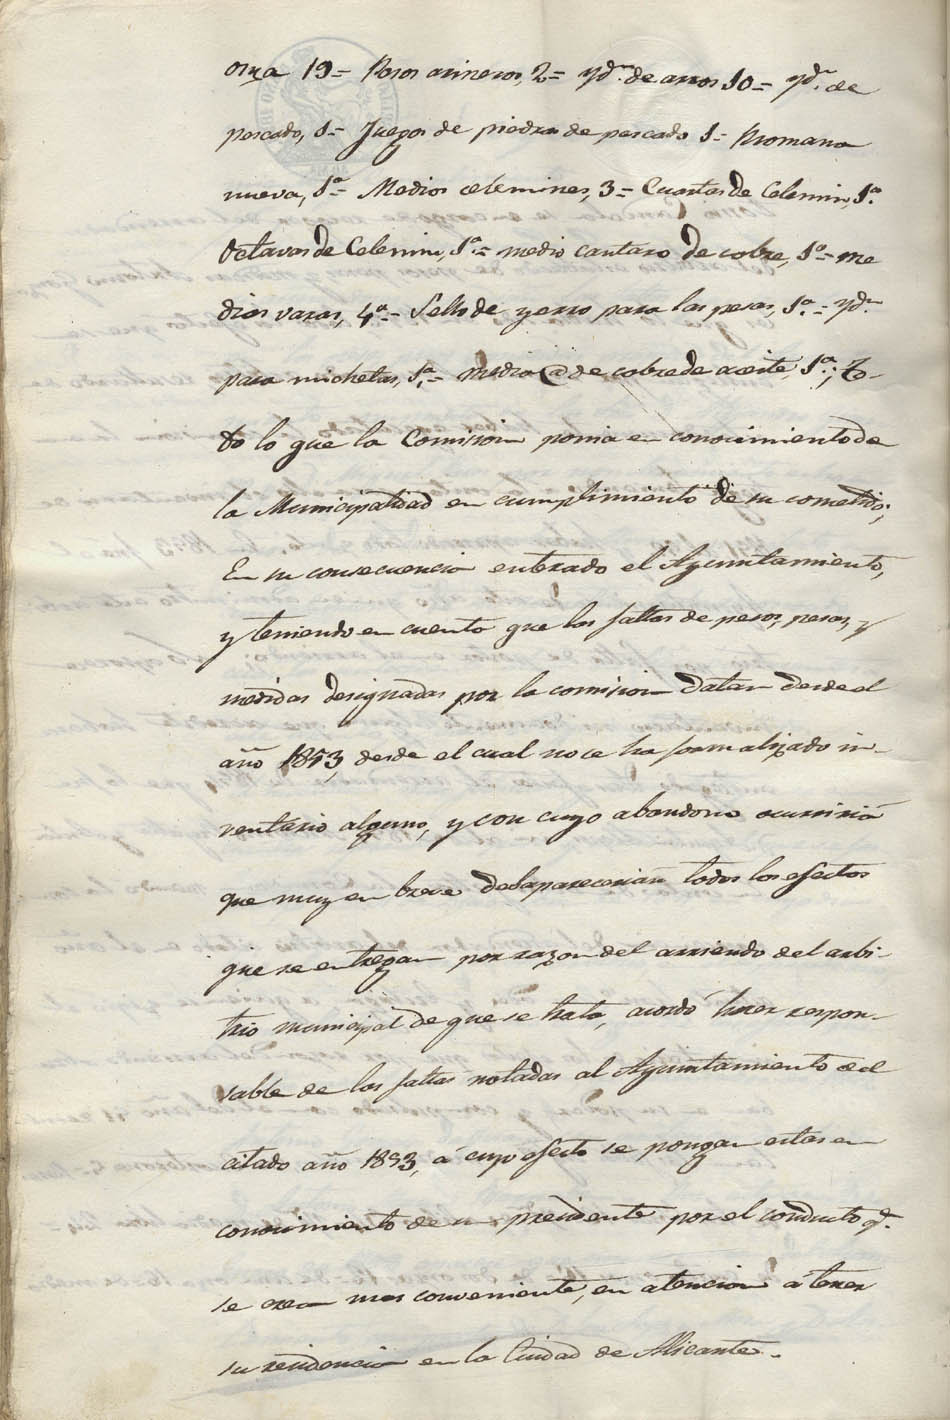 onza 19= Pesos arineros, 2= ydm. de arros 10= yd. de
pescado, 1= Juegos de piedra de pescado 1= Rromana
nueva, 1ª= Medios celemines, 3= Cuartas de Celemin, 1ª.
Octavas de Celemin, 1ª.= medio cantaro de cobre, 1º= me
dias varas, 4ª= Sello de yerro para las pesas, 1ª.= ydm.
para michetas, 1ª.= media @ de cobre de aceite, 1ª.; To-
do lo que la Comision ponia en conocimiento de
la Municipalidad en cumplimiento de su cometido;
En su consecuencia enterado el Ayuntamiento,
y teniendo en cuenta que las faltas de pesos, pesas, y
medidas designadas por la comision datan desde el
año 1853, desde el cual no ce ha formalizado in-
ventario alguno, y con cuyo abandono ocurriria
que muy en breve desaparecerian todos los efectos
que se entregan por razon del arriendo del arbi-
trio municipal de que se trata, acordó hacer respon-
sable de las faltas notadas al Ayuntamiento del
citado año 1853, á cuyo efecto se pongan estas en
conocimiento de su presidente por el conducto q.
se crea mas conveniente, en atencion á tener
su residencia en la Ciudad de Alicante.